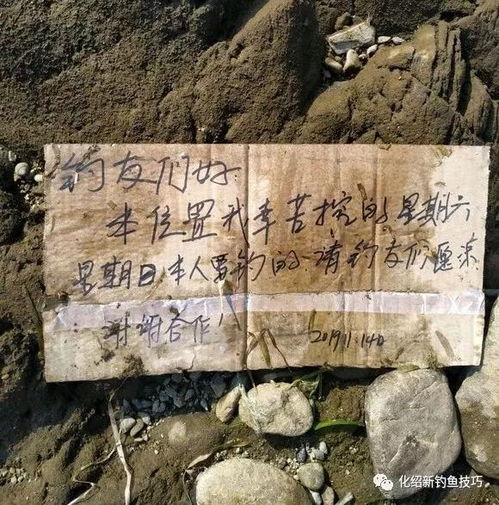 钓友们好
本位置我辛苦挖的星期六
星期日本人要钓的请钓友们愿谅
谢谢合作!
2019.11.14日
化绍新钓鱼技巧